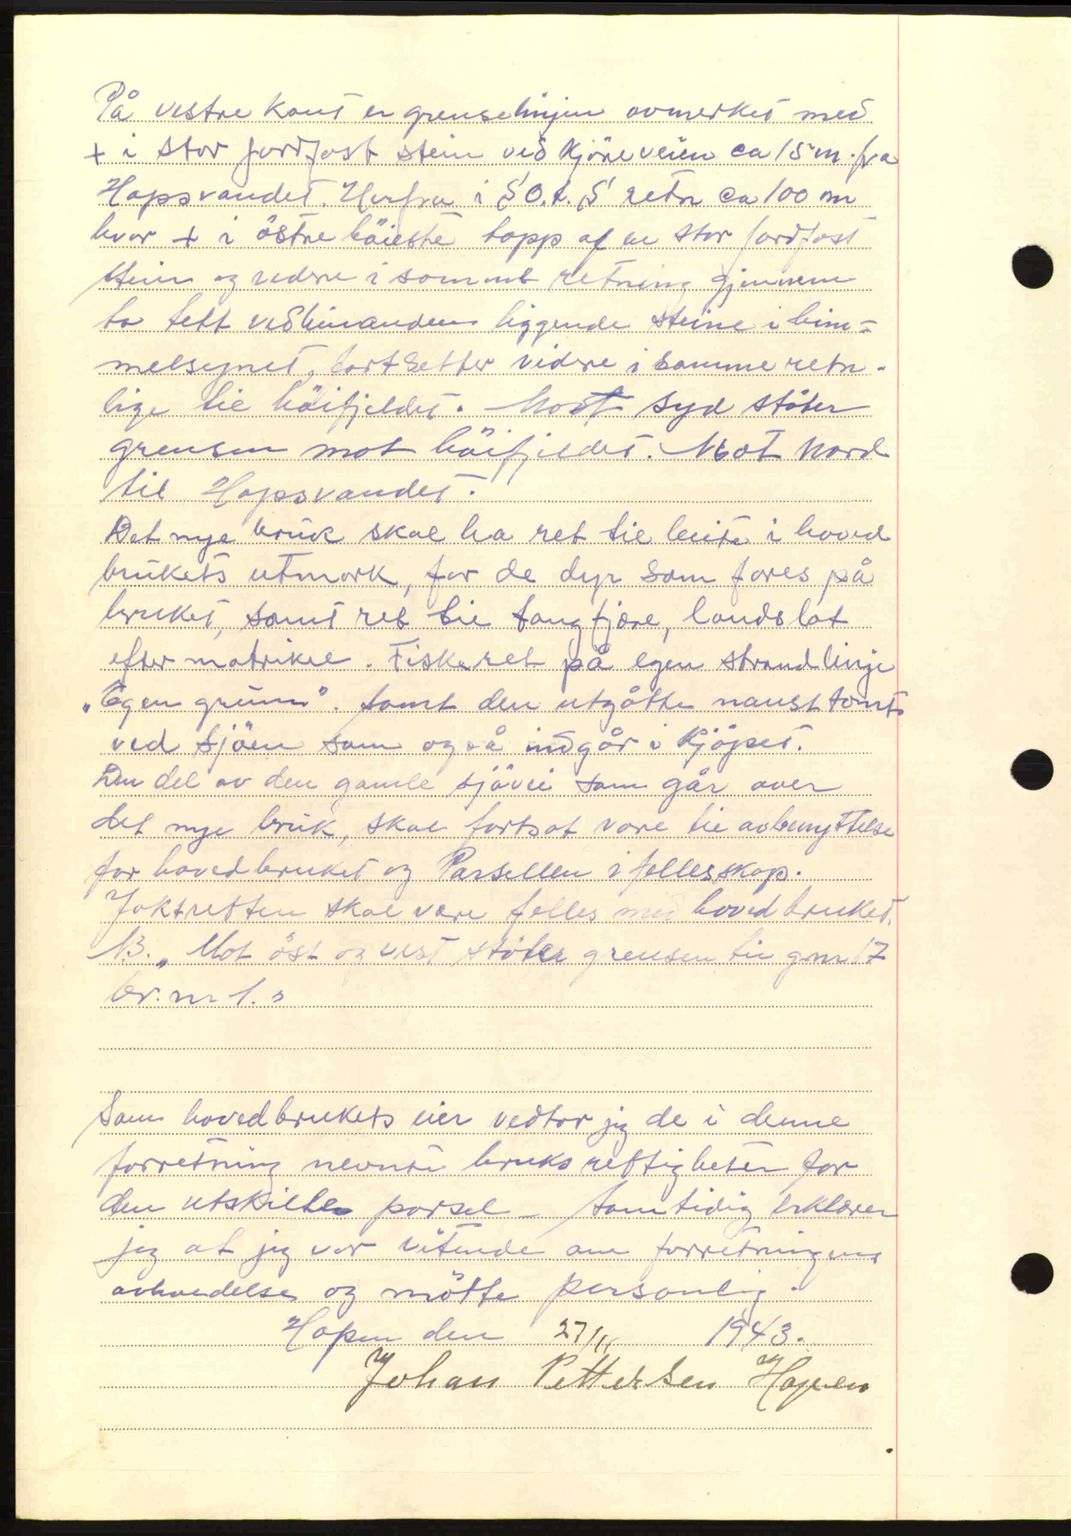 På vestre kant er grenselinjen avmerket med
+ i stor jordfast stein ved kjøreveien ca 15 m. fra
Hopsvandet. Herfra i S.O.t.S retn ca 100 m
hvor + i östre höieste topp af en stor jordfast
stein og videre i samme retning gjennem
to tett ved hinanden liggende steine i him=
melsynet, fortsetter videre i samme retn-
lige til höifjeldet. Mot syd stöter
grensen mot höifjeldet. Mot nord
til Hopsvandet.
Det nye bruk skal ha ret til beite i hoved
brukets utmark, for de dyr som fores på
bruket, samt ret til tangfjære, landslot
efter matrikel. Fiskeret på egen strandlinje
"Egen grunn". Samt den utgåtte nausttomt
ved sjöen som også indgår i kjöpet.
Den del av den gamle sjövei som går over
det nye bruk, skal fortsat være til avbenyttelse
for hovedbruket og Parsellen i fellesskap.
Jaktretten skal være felles med hovedbruket.
N3. „Mot öst og vest stöter grensen til gnr 17
br. nr 1."
Som hovedbrukets eier vedtar jeg de i denne
forretning nevnte bruksrettigheter for
den utskilte parsel – Samtidig erklærer
jeg at jeg var vitende om forretningens
avhoedelse og mötte personlig.
Hopen den 27/11 1943.
Johan Pettersen Hopen